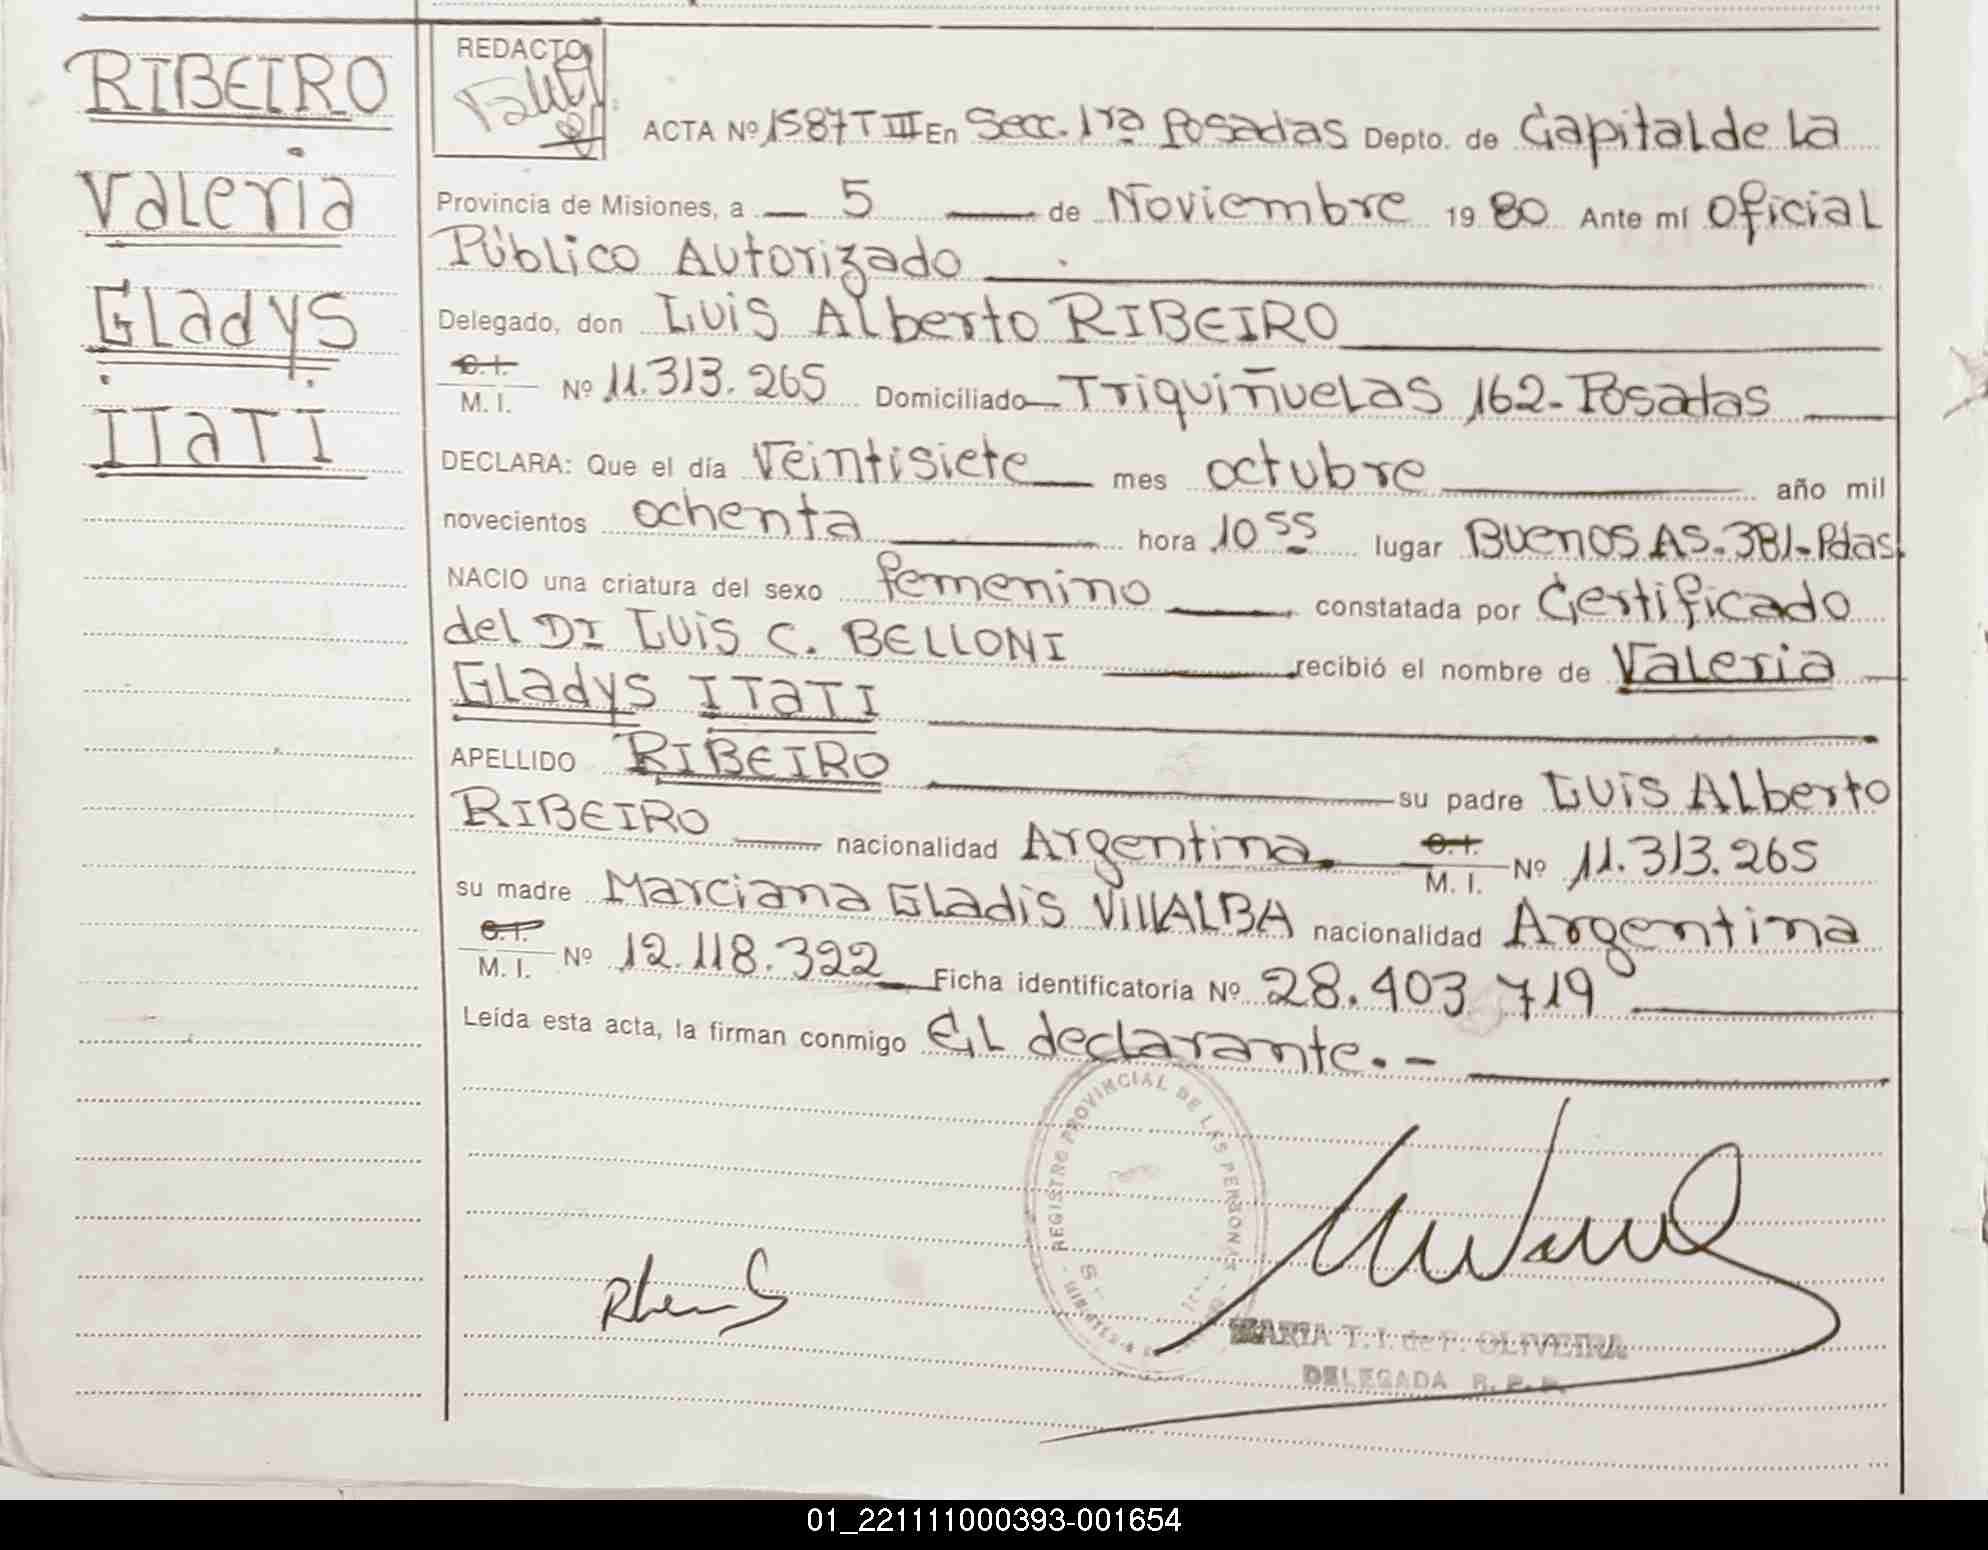 RIBEIRO
Valeria
Gladys
ITATI
REDACTO
ACTA Nº 1587 T III En Secc. 1ra Posadas Depto. de Capital de La
Provincia de Misiones, a 5 de Noviembre 1980 Ante mí Oficial
Público Autorizado
Delegado, don Luis Alberto RIBEIRO
C.I. M.I. Nº 11.313.265 Domiciliado Triquiñuelas 162-Posadas
DECLARA: Que el día Veintisiete mes octubre año mil
novecientos ochenta hora 10 55 lugar Buenos As. 381-Pdas.
NACIO una criatura del sexo femenino constatada por Certificado
del Dr Luis C. BELLONI recibió el nombre de Valeria
Gladys ITATI
APELLIDO RIBEIRO su padre Luis Alberto
RIBEIRO nacionalidad Argentina. C.I. M.I. Nº 11.313.265
su madre Marciana Gladis VILLALBA nacionalidad Argentina
C.I. M.I. Nº 12.118.322 Ficha identificatoria Nº 28.403.719
Leída esta acta, la firman conmigo El declarante.-
REGISTRO PROVINCIAL DE LAS PERSONAS
MARIA T. I. de F. OLIVEIRA
DELEGADA R. P. P.
01_221111000393-001654